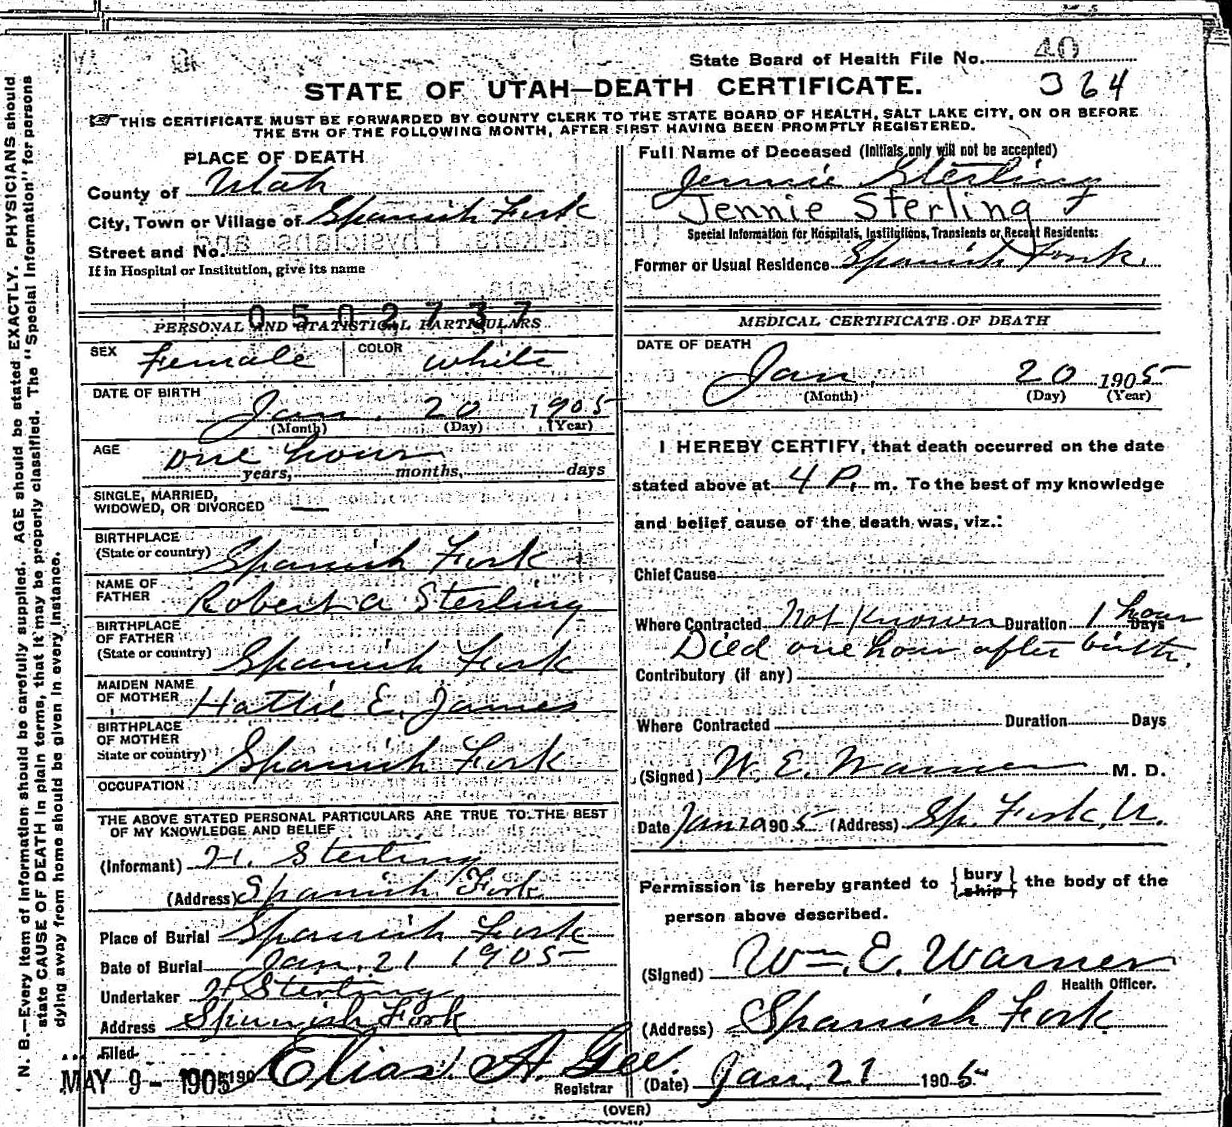 State Board of Health File No. 40
364
STATE OF UTAH—DEATH CERTIFICATE.
THIS CERTIFICATE MUST BE FORWARDED BY COUNTY CLERK TO THE STATE BOARD OF HEALTH, SALT LAKE CITY, ON OR BEFORE
THE 5TH OF THE FOLLOWING MONTH, AFTER FIRST HAVING BEEN PROMPTLY REGISTERED.
PLACE OF DEATH
County of Utah
City, Town or Village of Spanish Fork
Street and No.
If in Hospital or Institution, give its name
0502737
PERSONAL AND STATISTICAL PARTICULARS
SEX Female COLOR white
DATE OF BIRTH Jan. 20 1905
(Month) (Day) (Year)
AGE one hour
years, months, days
SINGLE, MARRIED,
WIDOWED, OR DIVORCED —
BIRTHPLACE
(State or country) Spanish Fork
NAME OF
FATHER Robert A Sterling
BIRTHPLACE
OF FATHER
(State or country) Spanish Fork
MAIDEN NAME
OF MOTHER Hattie E. James
BIRTHPLACE
OF MOTHER
State or country) Spanish Fork
OCCUPATION
THE ABOVE STATED PERSONAL PARTICULARS ARE TRUE TO THE BEST
OF MY KNOWLEDGE AND BELIEF
(Informant) H. Sterling
(Address) Spanish Fork
Place of Burial Spanish Fork
Date of Burial Jan. 21 1905
Undertaker H Sterling
Address Spanish Fork
Filed
MAY 9 - 1905 190 Elias A. Gee.
Registrar
Full Name of Deceased (Initials only will not be accepted)
Jennie Sterling
Jennie Sterling F
Special Information for Hospitals, Institutions, Transients or Recent Residents:
Former or Usual Residence Spanish Fork.
MEDICAL CERTIFICATE OF DEATH
DATE OF DEATH
Jan. 20 1905
(Month) (Day) (Year)
I HEREBY CERTIFY, that death occurred on the date
stated above at 4 P. m. To the best of my knowledge
and belief cause of the death was, viz.:
Chief Cause
Where Contracted Not Known Duration 1 hour Days
Died one hour after birth.
Contributory (if any)
Where Contracted Duration Days
(Signed) W. E. Warner M. D.
Date Jan 20 1905 (Address) Sp. Fork, U.
Permission is hereby granted to {bury ship} the body of the
person above described.
(Signed) Wm. E. Warner
Health Officer.
(Address) Spanish Fork
(Date) Jan. 21 1905
(OVER)
N. B.—Every item of information should be carefully supplied. AGE should be stated EXACTLY. PHYSICIANS should
state CAUSE OF DEATH in plain terms, that it may be properly classified. The "Special Information" for persons
dying away from home should be given in every instance.